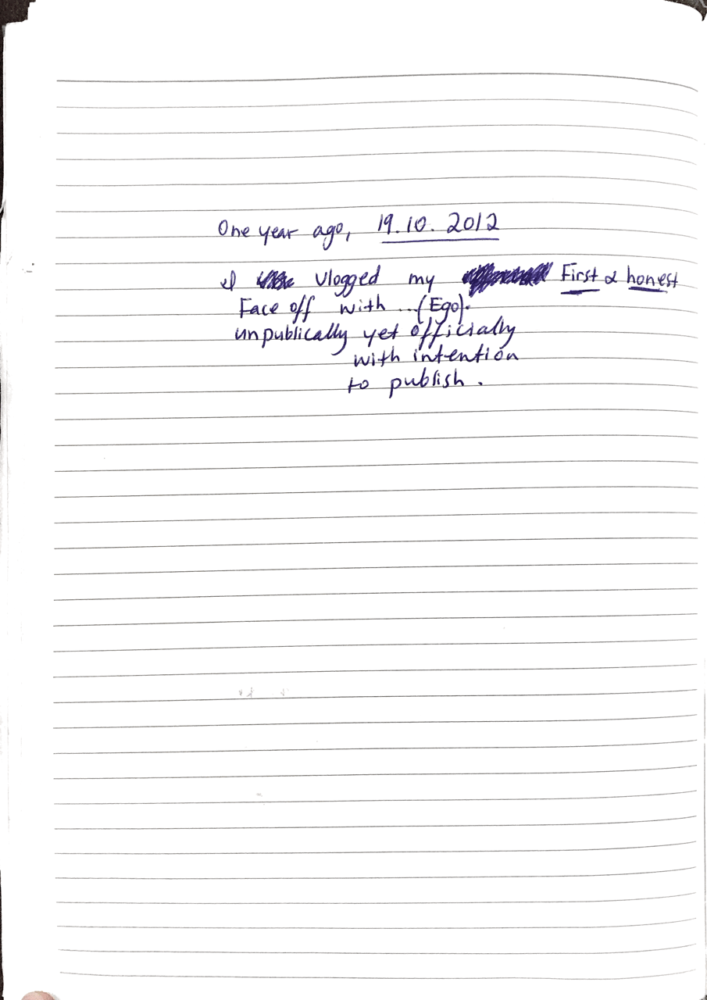 One year ago, 19.10.2012
I vlogged my First & honest
Face off with ...(Ego).
unpublically yet officially
with intention
to publish.